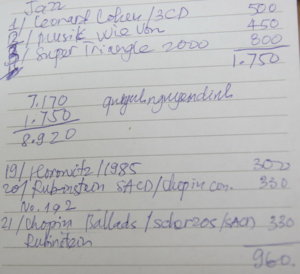 Jazz
1/ Leonard Cohen / 3CD 500
2/ Musik Wie Von 450
3/ Super Triangle 2000 800
1.750
7.170
1.750
8.920
19/ Horowitz / 1985 300
20/ Rubinstein SACD / Chopin con. 330
No. 1 & 2
21/ Chopin Ballads / Scherzos / SACD 330
Rubinstein
960.